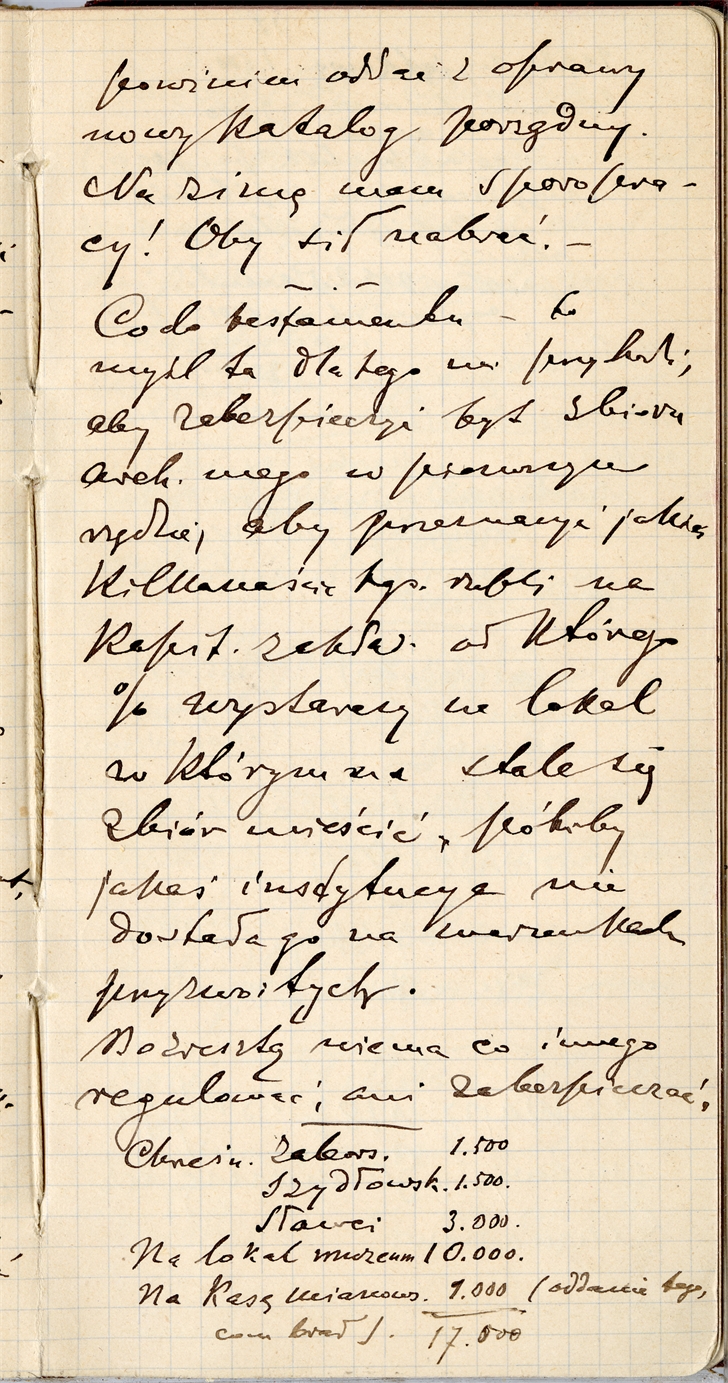 powinien oddać z oprawy
nowy katalog porządny.
Na zimę mam sporo pra-
cy! Oby sił nabrać. –
Co do testamentu – to
myśl ta dlatego mi przychodzi,
aby zabezpieczyć byt zbioru
arch. mego w pierwszym
rzędzie, aby przeznaczyć jakieś
kilkanaście tys. rubli na
kapit. zakład. od którego
% wystarczy na lokal
w którym ma stale się
zbiór mieścić, pókiby
jakaś instytucya nie
dostała go na warunkach
przyzwoitych.
Bo zresztą niema co innego
regulować, ani zabezpieczać.
Chrześn. Zabors. 1.500
Szydłowsk. 1.500.
Sławci 3.000.
Na lokal muzeum 10.000.
Na Kasę Mianows. 1.000 (oddanie tego,
com brał). 17.000